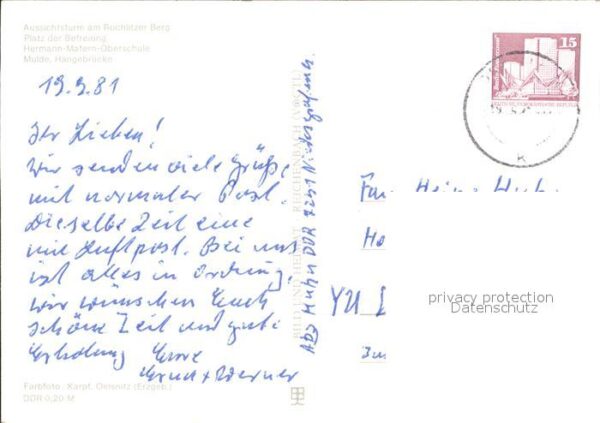 Aussichtsturm am Rochlitzer Berg
Platz der Befreiung
Hermann-Matern-Oberschule
Mulde, Hängebrücke
19.9.81
Ihr Lieben!
Wir senden viele Grüße
mit normaler Post.
Dieselbe Zeit eine
mit Luftpost. Bei uns
ist alles in Ordnung,
wir wünschen Euch
schöne Zeit und gute
Erholung Eure
Ernst + Werner
Farbfoto: Karpf, Oelsnitz (Erzgeb.)
DDR 0,20 M
BILD UND HEIMAT REICHENBACH
DDR
15
YU
privacy protection
Datenschutz